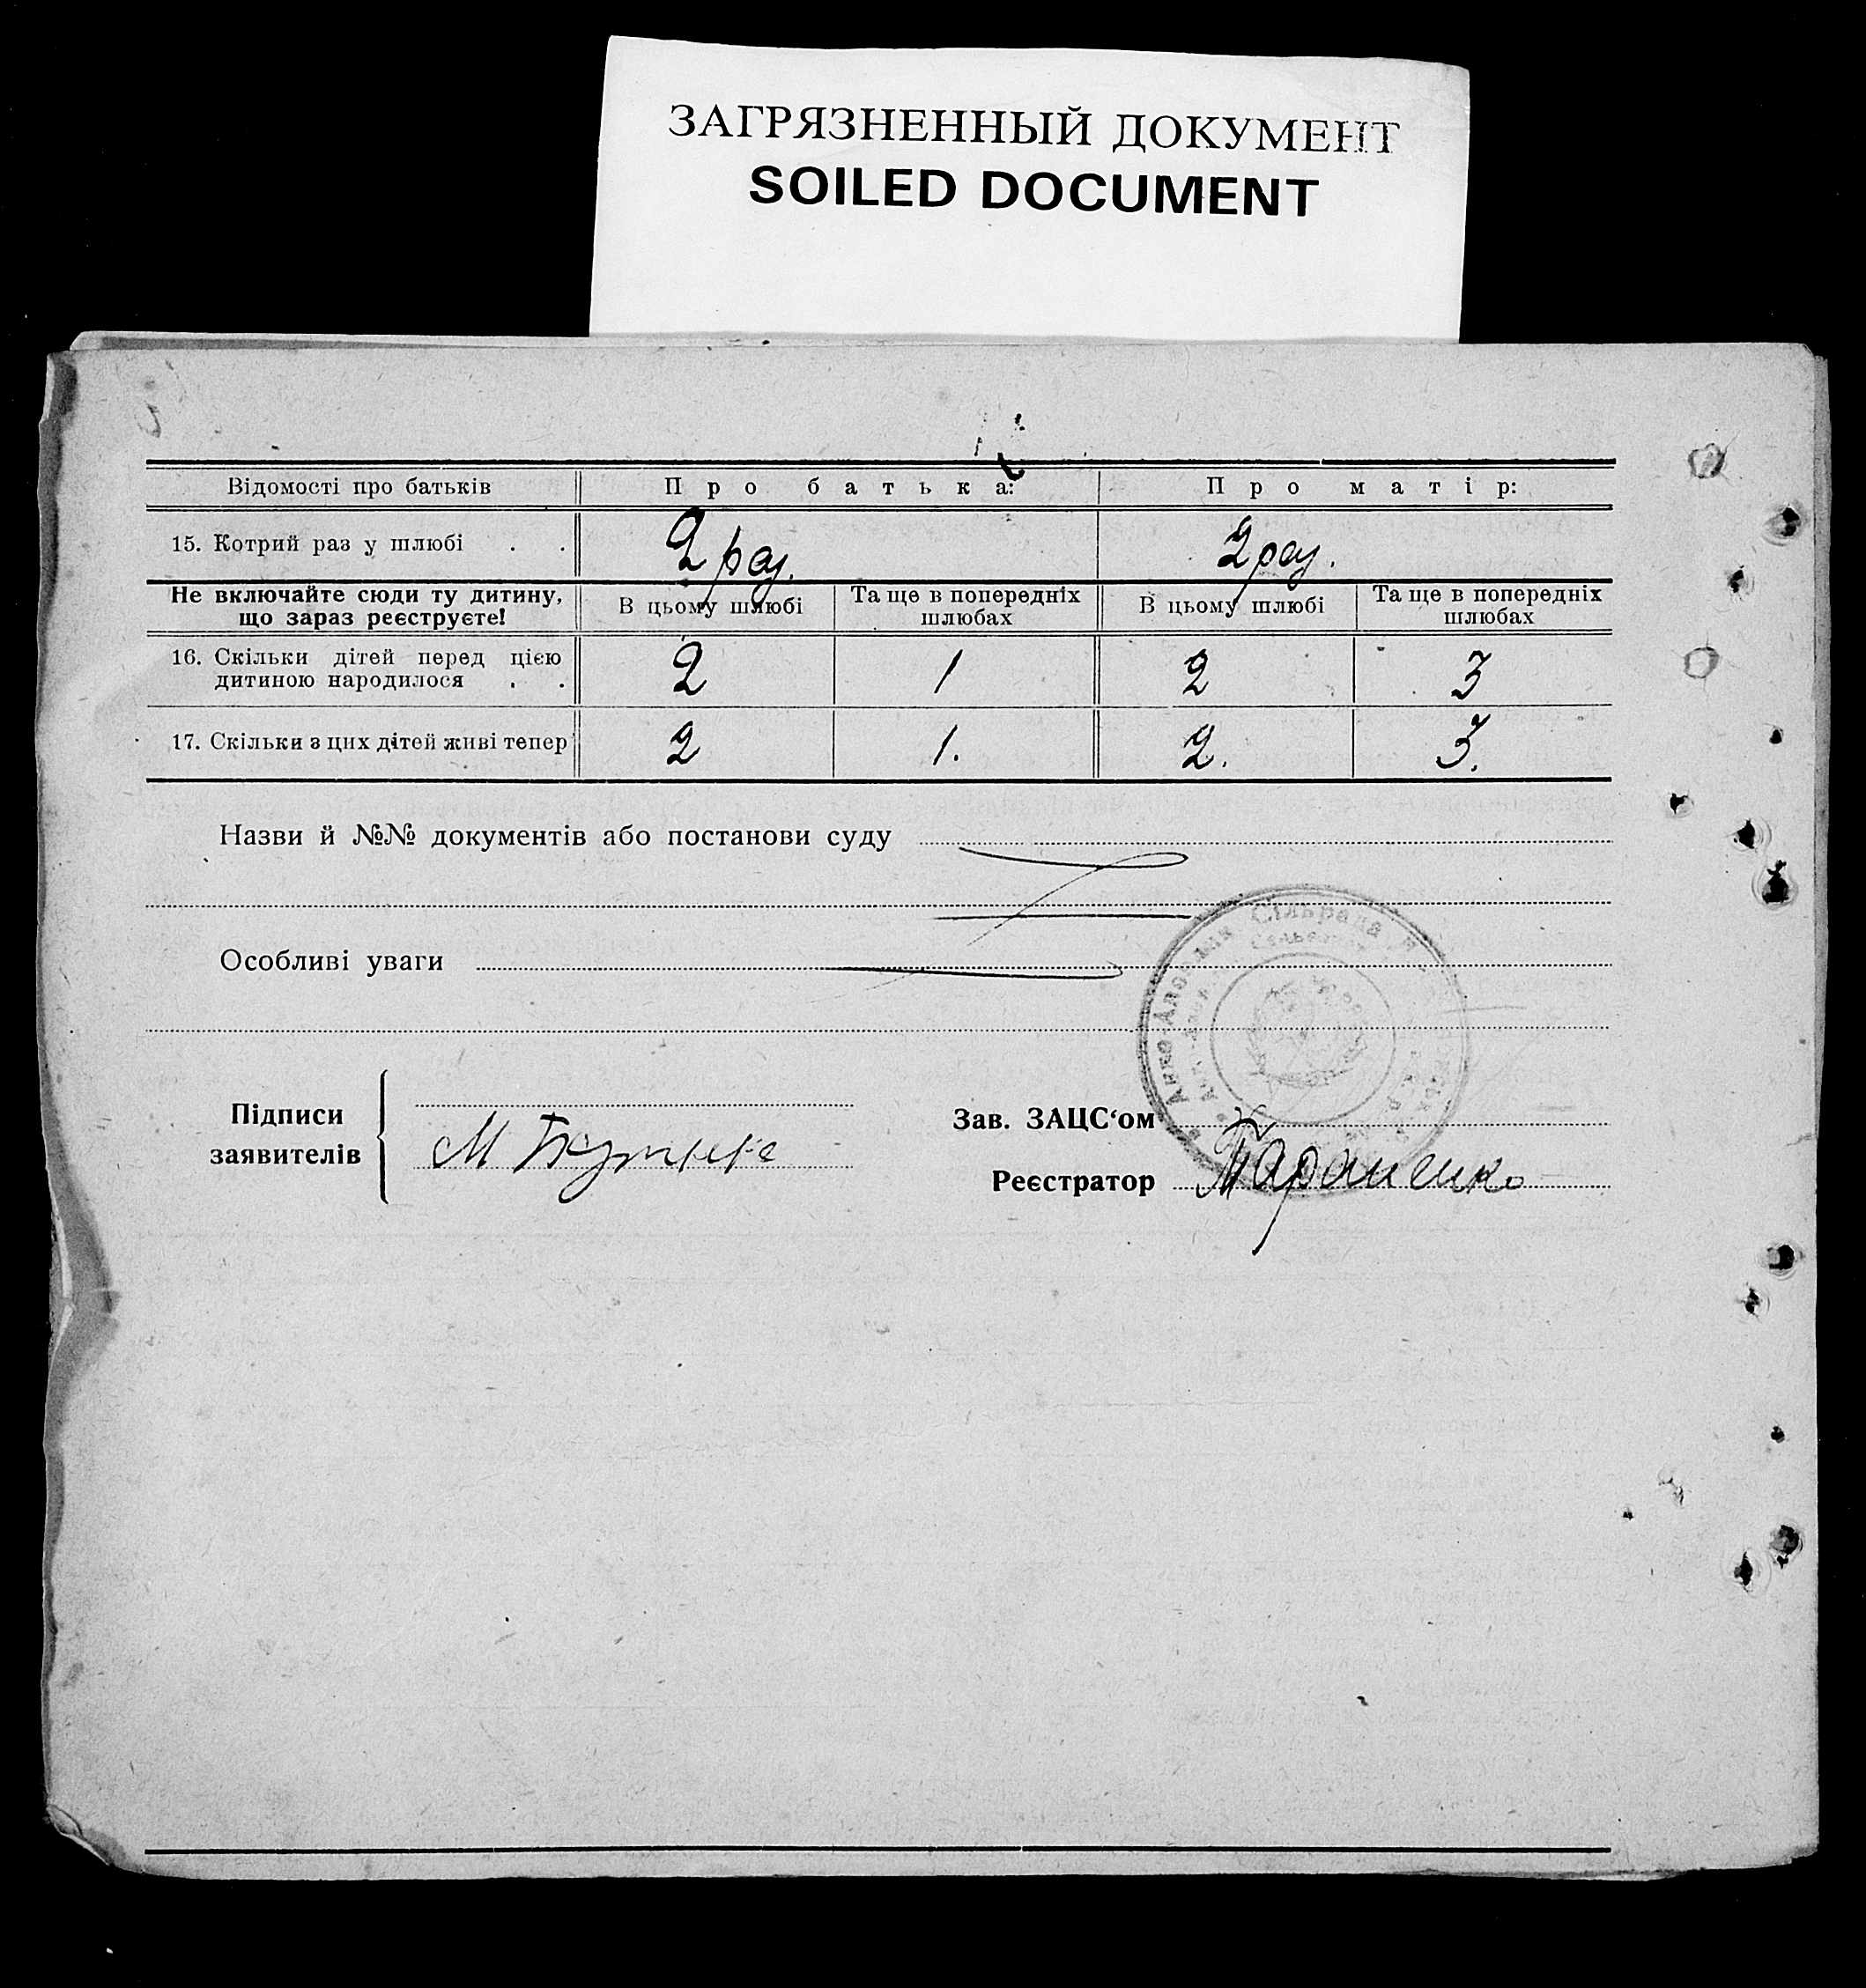 ЗАГРЯЗНЕННЫЙ ДОКУМЕНТ
SOILED DOCUMENT
Відомості про батьків Про батька: Про матір:
15. Котрий раз у шлюбі . . 2 раз. 2 раз.
Не включайте сюди ту дитину, що зараз реєструєте! В цьому шлюбі Та ще в попередніх шлюбах В цьому шлюбі Та ще в попередніх шлюбах
16. Скільки дітей перед цією дитиною народилося . . 2 1 2 3
17. Скільки з цих дітей живі тепер 2 1. 2. 3.
Назви й №№ документів або постанови суду
Особливі уваги
Сільрада
Підписи заявителів
М
Зав. ЗАЦС‘ом
Реєстратор Тараненко